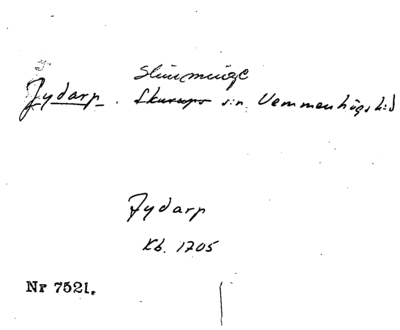 Slimminge
Jydarp. Skurups sn. Vemmenhögs hd
Jydarp
Kb. 1705
Nr 7521.